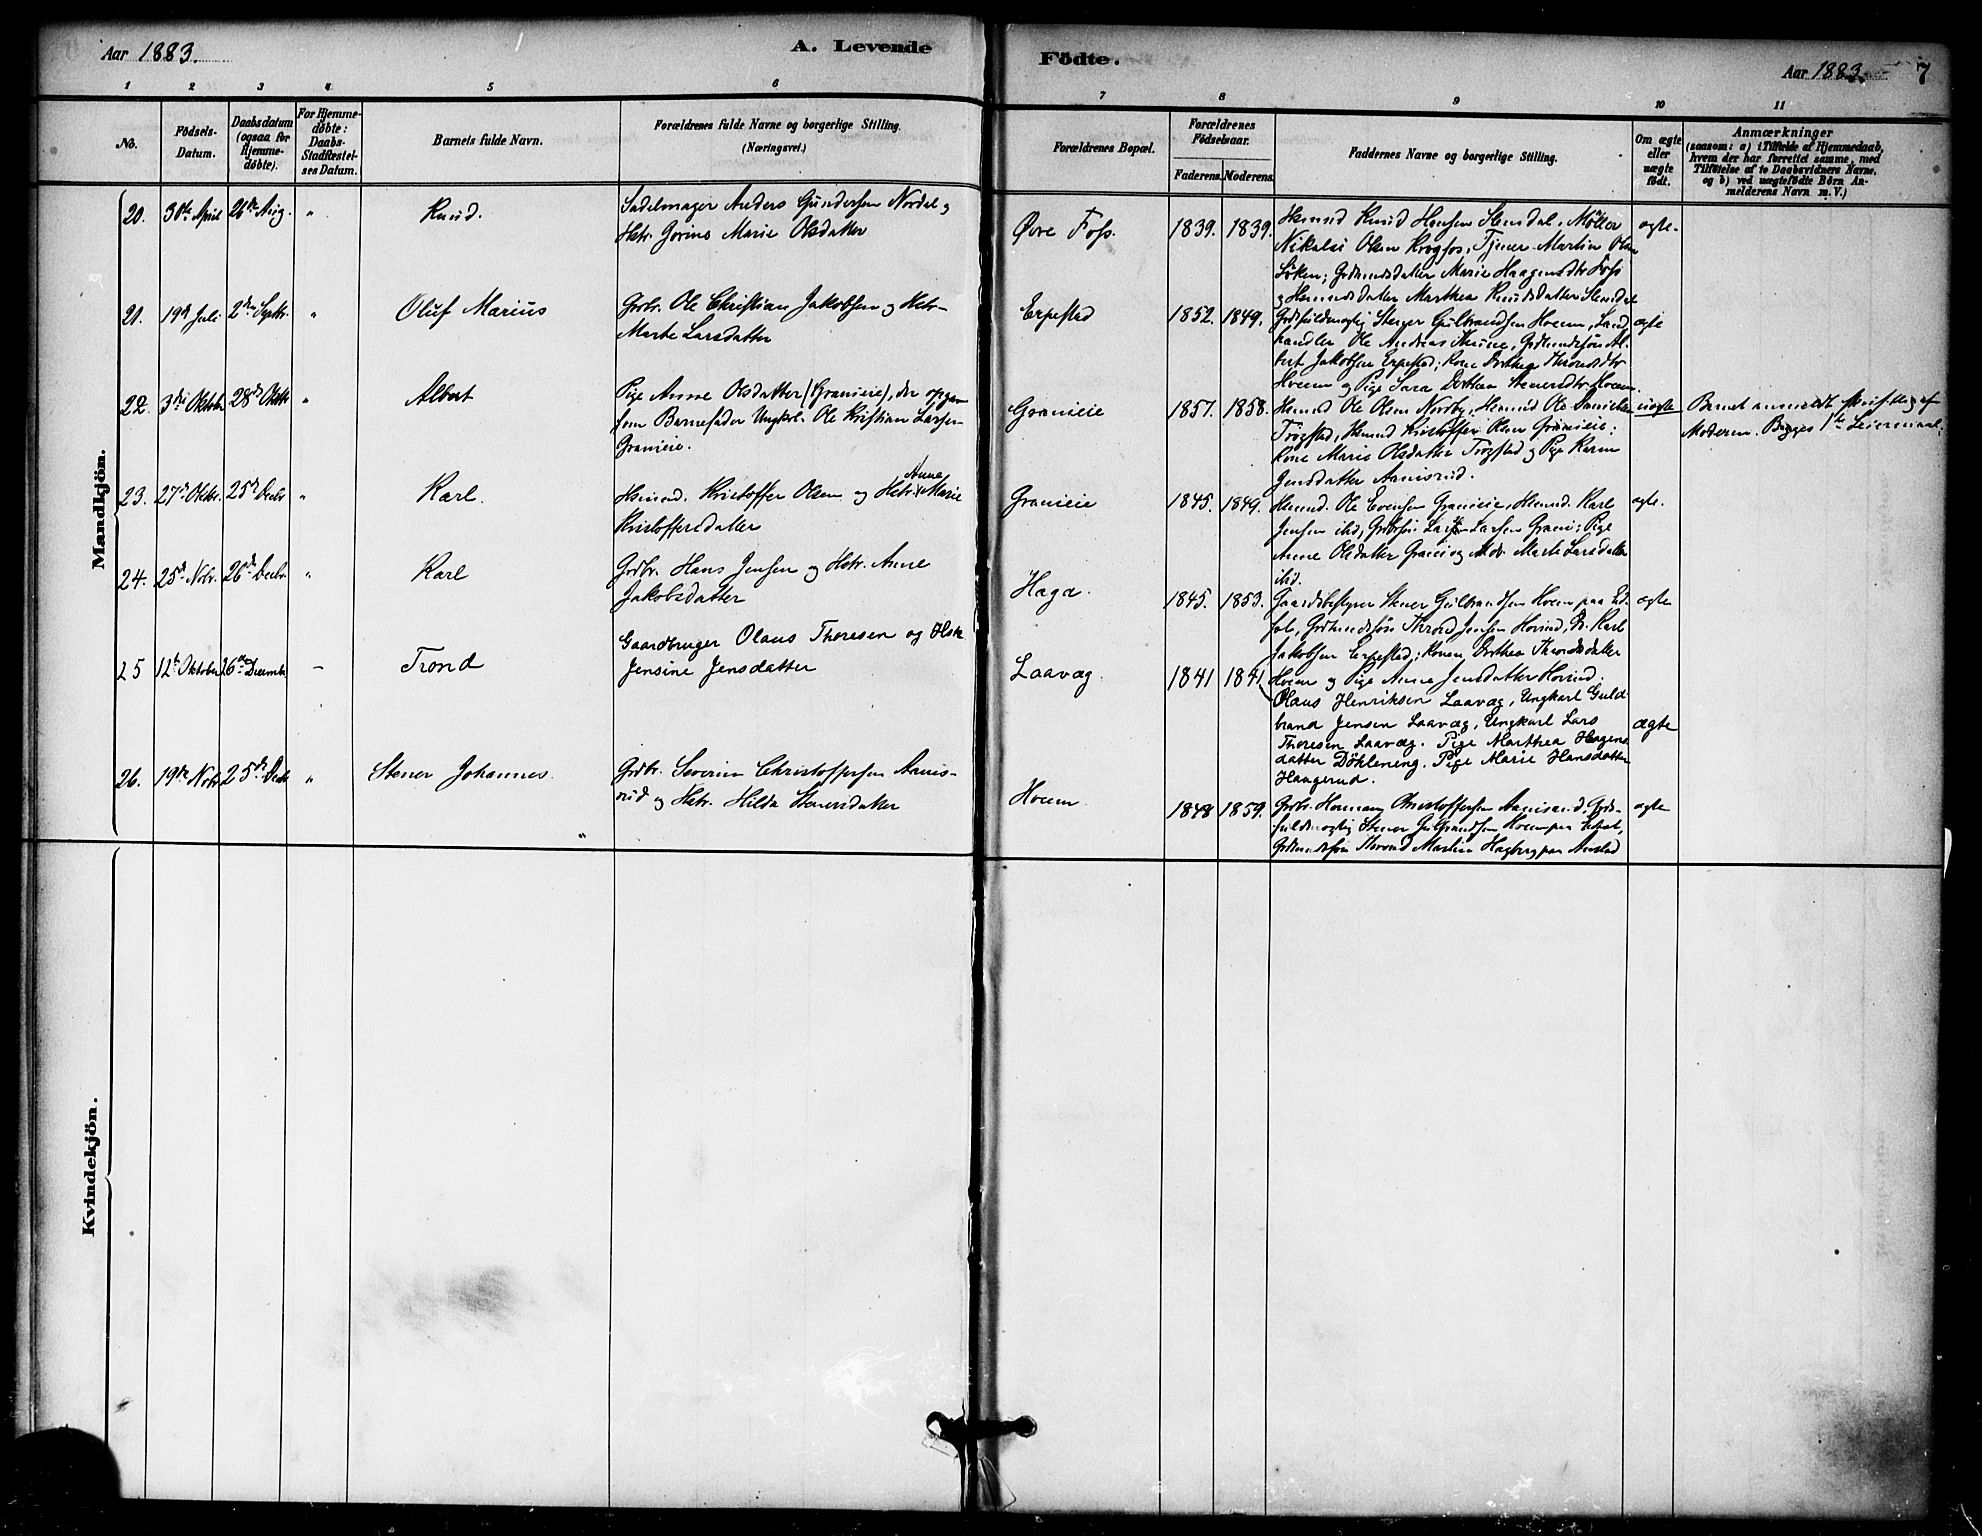 Aar 1883.
A. Levende
Födte.
Aar 1883.
7
1 2 3 4 5 6 7 8 9 10 11
No.
Födsels-Datum.
Daabsdatum (ogsaa for Hjemme-döbte).
For Hjemme-döbte: Daabs-Stadfæstel-ses Datum.
Barnets fulde Navn.
Forældrenes fulde Navne og borgerlige Stilling.
(Næringsvei.)
Forældrenes Bopæl.
Forældrenes Födselsaar.
Faderens. Moderens.
Faddernes Navne og borgerlige Stilling.
Om ægte eller uægte födt.
Anmærkninger
(saasom: a) i Tilfælde af Hjemmedaab,
hvem der har forrettet samme, med
Tilföielse af to Daabsvidners Navne,
og b) ved uægtefödte Börn An-
melderens Navn m. V.)
Mandkjön.
20. 30te April 26de Aug. " Knud.
Sadelmager Anders Gundersen Nordal og
Hstr. Gorine Marie Olsdatter
Øvre Foss. 1839. 1839.
Husmd Knud Hansen Stendal, Møller
Nikolai Olsen Krogfos, Tjener Martin Olsen
Löken; Grdmdsdatter Marie Haagensdtr Foss
og Husmdsdatter Marthea Knudsdatter Stendal
ægte.
21. 19d Juli 2den Septbr. " Oluf Marius
Grbr. Ole Christian Jakobsen og Hstr.
Marte Larsdatter
Erpestad 1852. 1849.
Stener Gulbrandsen Hoem, Land
handler Ole Andreas
Jakobsen Erpestad; Kone Dorthea Throndsdtr
Hoem og Pige Sara Dorthea Stenersdtr Hoem.
ægte
22. 3die Oktober 28de Oktbr " Albert
Pige Anne Olsdatter (Granieie), der opgav
som Barnefader Ungkrl. Ole Kristian Larsen
Granieie.
Granieie 1857. 1858.
Husmd Ole Olsen Nordby, Husmd Ole Danielsen
Trøgstad, Husmd Kristoffer Olsen Granieie;
Kone Marie Olsdatter Trøgstad og Pige Karen
Jensdatter Aamisrud.
uægte
Barnet anmeldt skriftlig af
Moderen. Begges 1ste Leiermaal.
23. 27d Oktbr. 25d Decbr " Karl.
Husmd. Kristoffer Olsen og Hstr. Anne Marie
Kristoffersdatter
Granieie 1845. 1849.
Husmd. Ole Evensen Granieie, Husmd. Karl
Jensen ibd, Larsen Grani; Pige
Anne Olsdatter Grani og Marte Larsdatter
ibd.
ægte.
24. 25d Nobr. 26d Decbr. " Karl
Grdbr. Hans Jensen og Hstr. Anne
Jakobsdatter
Haga. 1845. 1853.
Gaardsbestyrer Stener Gulbrandsen Hoem paa
Grdmdsön Thrond Jensen Hovind, Karl
Jakobsen Erpestad; Konen Dorthea Throndsdatter
Hoem og Pige Anne Jensdatter Hovind.
ægte
25 12te Oktober 26de December – Trond
Gaardbruger Olaus Thoresen og Hstr
Jensine Jensdatter
Laavæg. 1841 1841
Olaus Henriksen Laavæg, Ungkarl Guld
brand Jensen Laavæg, Ungkarl Lars
Thoresen Laavæg. Pige Marthea Haagens
datter Döhlenæng. Pige Marie Hansdatter
Haagerud.
ægte
26. 19de Nobr 25de Decbr " Stener Johannes.
Grdbr. Severin Christoffersen Aamis-
rud og Hstr. Hilda Stenersdatter
Hoem. 1848 1859.
Grdbr. Herman Christoffersen Aamisrud, Grds-
fuldmægtig Stener Gulbrandsen Hoem paa
Thrond Martin Hagberg paa
ægte
"
Kvindekjön.